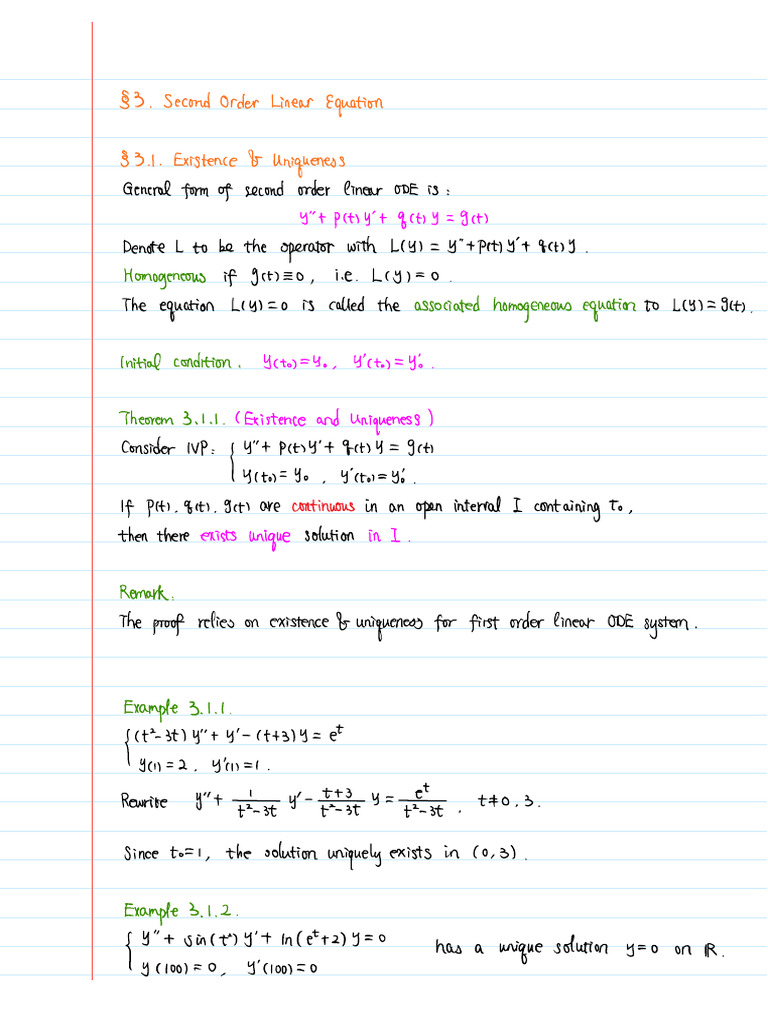 §3. Second Order Linear Equation
§3.1. Existence & Uniqueness
General form of second order linear ODE is:
y''+ p(t) y'+ q(t) y = g(t)
Denote L to be the operator with L(y) = y''+p(t) y'+ q(t) y.
Homogeneous if g(t)≡0, i.e. L(y)=0.
The equation L(y)=0 is called the associated homogeneous equation to L(y)=g(t).
Initial condition. y(t₀)=y₀, y'(t₀)=y₀'.
Theorem 3.1.1. (Existence and Uniqueness)
Consider IVP: { y''+ p(t) y'+ q(t) y = g(t)
y(t₀)= y₀, y'(t₀)=y₀'.
If p(t), q(t), g(t) are continuous in an open interval I containing t₀,
then there exists unique solution in I.
Remark.
The proof relies on existence & uniqueness for first order linear ODE system.
Example 3.1.1.
{ (t²-3t) y''+ y'-(t+3) y = eᵗ
y(1)=2, y'(1)=1.
Rewrite y''+ 1/(t²-3t) y' - (t+3)/(t²-3t) y = eᵗ/(t²-3t), t≠0,3.
Since t₀=1, the solution uniquely exists in (0,3).
Example 3.1.2.
{ y''+ sin(t²) y'+ ln(eᵗ+2) y=0 has a unique solution y=0 on ℝ.
y(100)=0, y'(100)=0